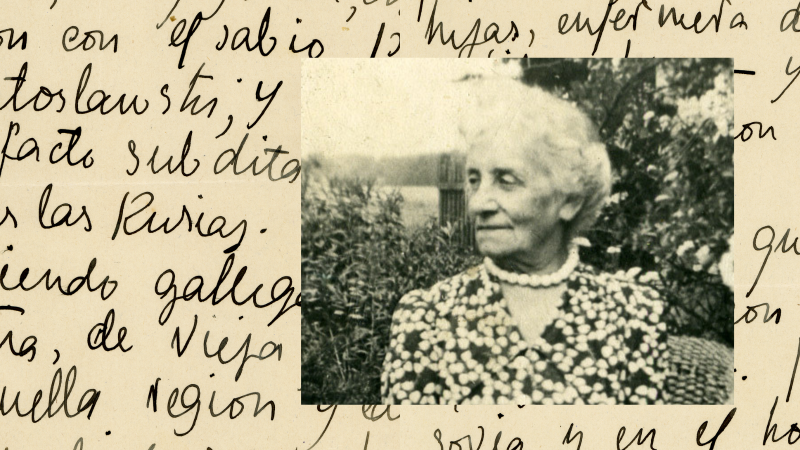 con el sabio
hijas, enfermera d
toslawski, y
y
facto subdita
on
s las Rusias.
qu
iendo gallega
on
ña, de Vieja
uella region y la
sovia y en el ho